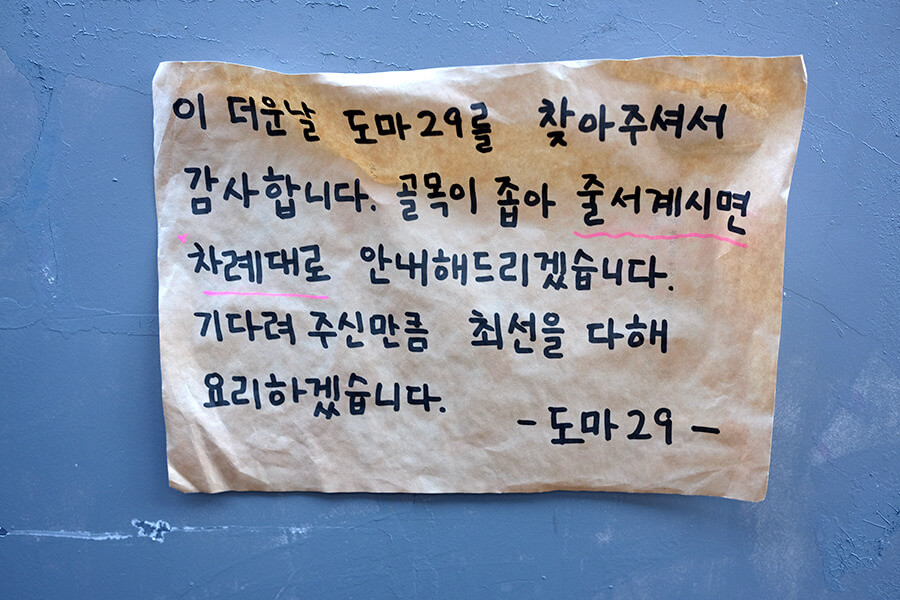 이 더운날 도마29를 찾아주셔서
감사합니다. 골목이 좁아 줄서계시면
차례대로 안내해드리겠습니다.
기다려 주신만큼 최선을 다해
요리하겠습니다.
- 도마 29 -